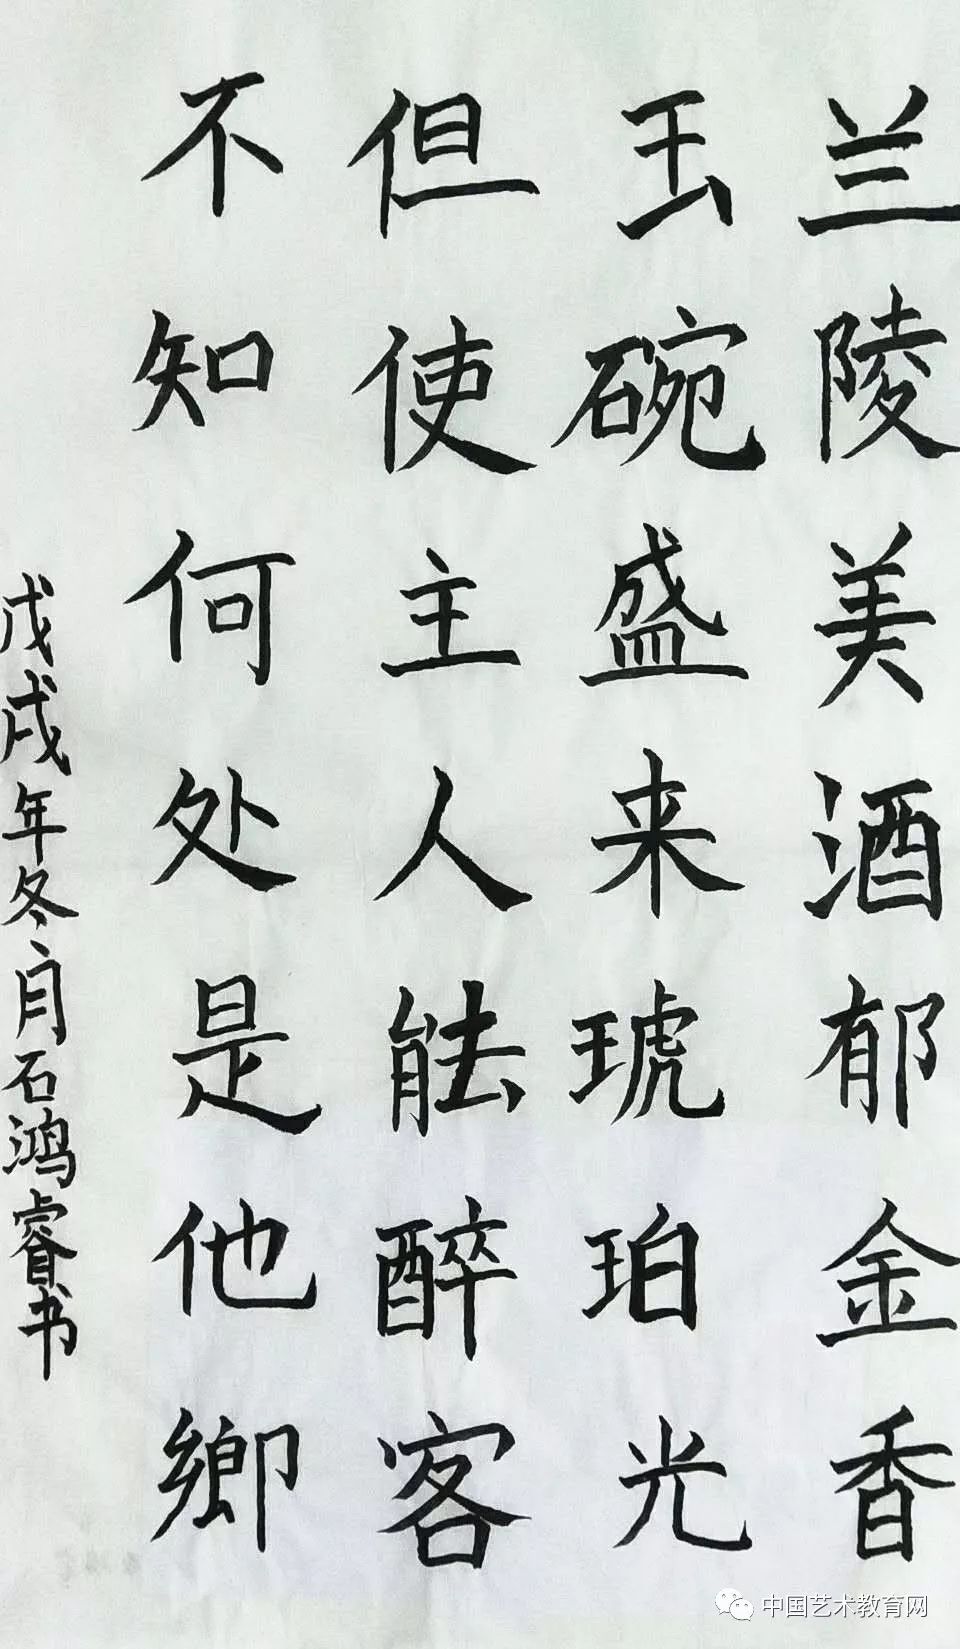 兰陵美酒郁金香
玉碗盛来琥珀光
但使主人能醉客
不知何处是他鄉
戊戌年冬月石鸿睿书
中国艺术教育网